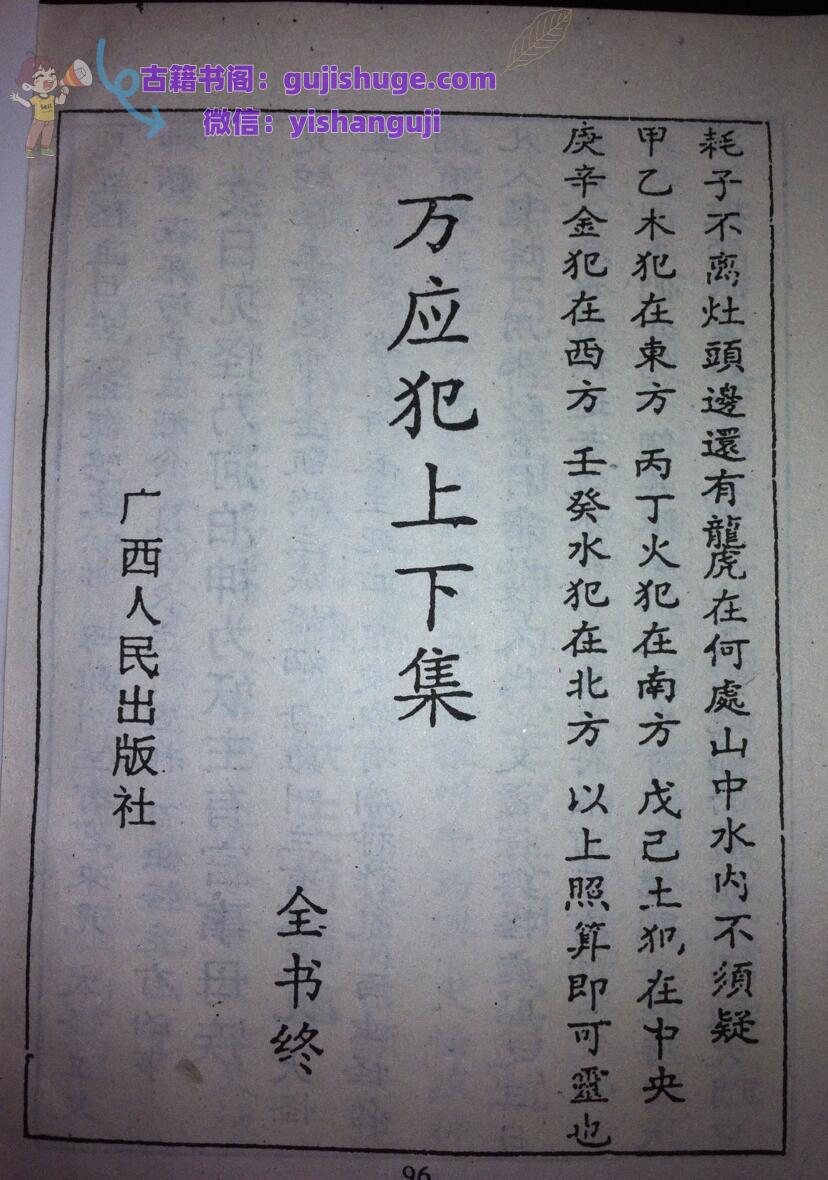 古籍书阁：gujishuge.com
微信：yishanguji
耗子不离灶頭邊還有龍虎在何處山中水内不須疑
甲乙木犯在東方 丙丁火犯在南方 戊己土犯在中央
庚辛金犯在西方 壬癸水犯在北方 以上照算即可靈也
万应犯上下集
全书终
广西人民出版社
96